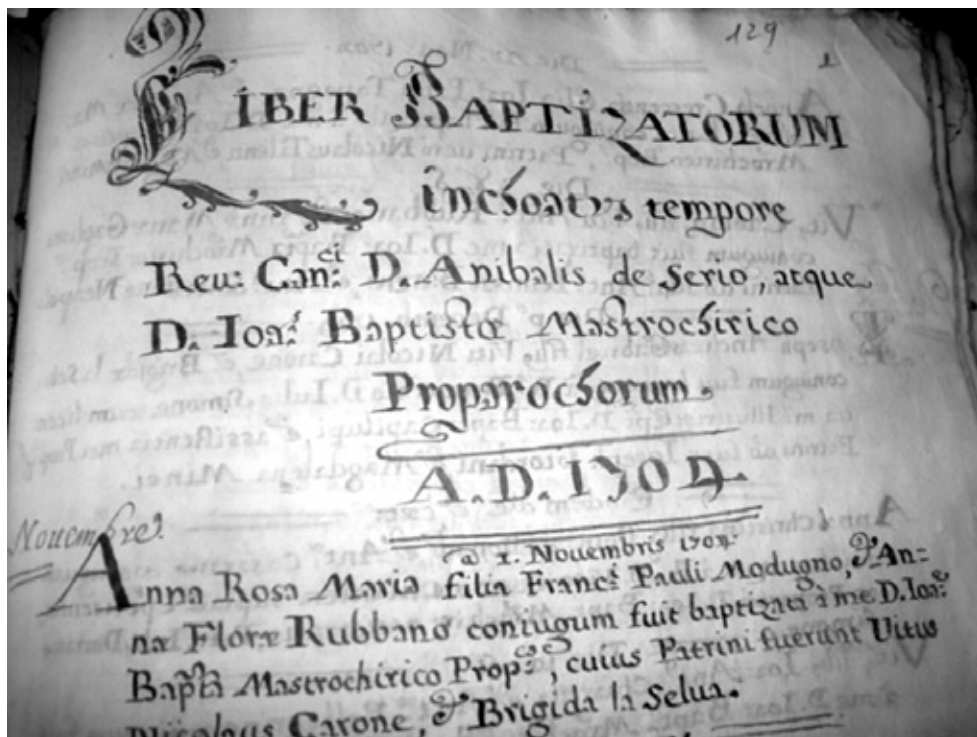 129
1
LIBER BAPTIZATORUM
inchoatus tempore
Reu: Can:ci D. Anibalis de Serio, atque
D. Ioa: Baptistæ Mastrochirico
Proparochorum.
A.D. 1704.
Nouembre
a 1. Nouembris 1704.
Anna Rosa Maria filia Franc:i Pauli Modugno, & An=
næ Floræ Rubbano coniugum fuit baptizata à me D. Ioa:
Bapta Mastrochirico Prop:, cuius Patrini fuerunt Uitus
Nicolaus Carone, & Brigida la Selua.